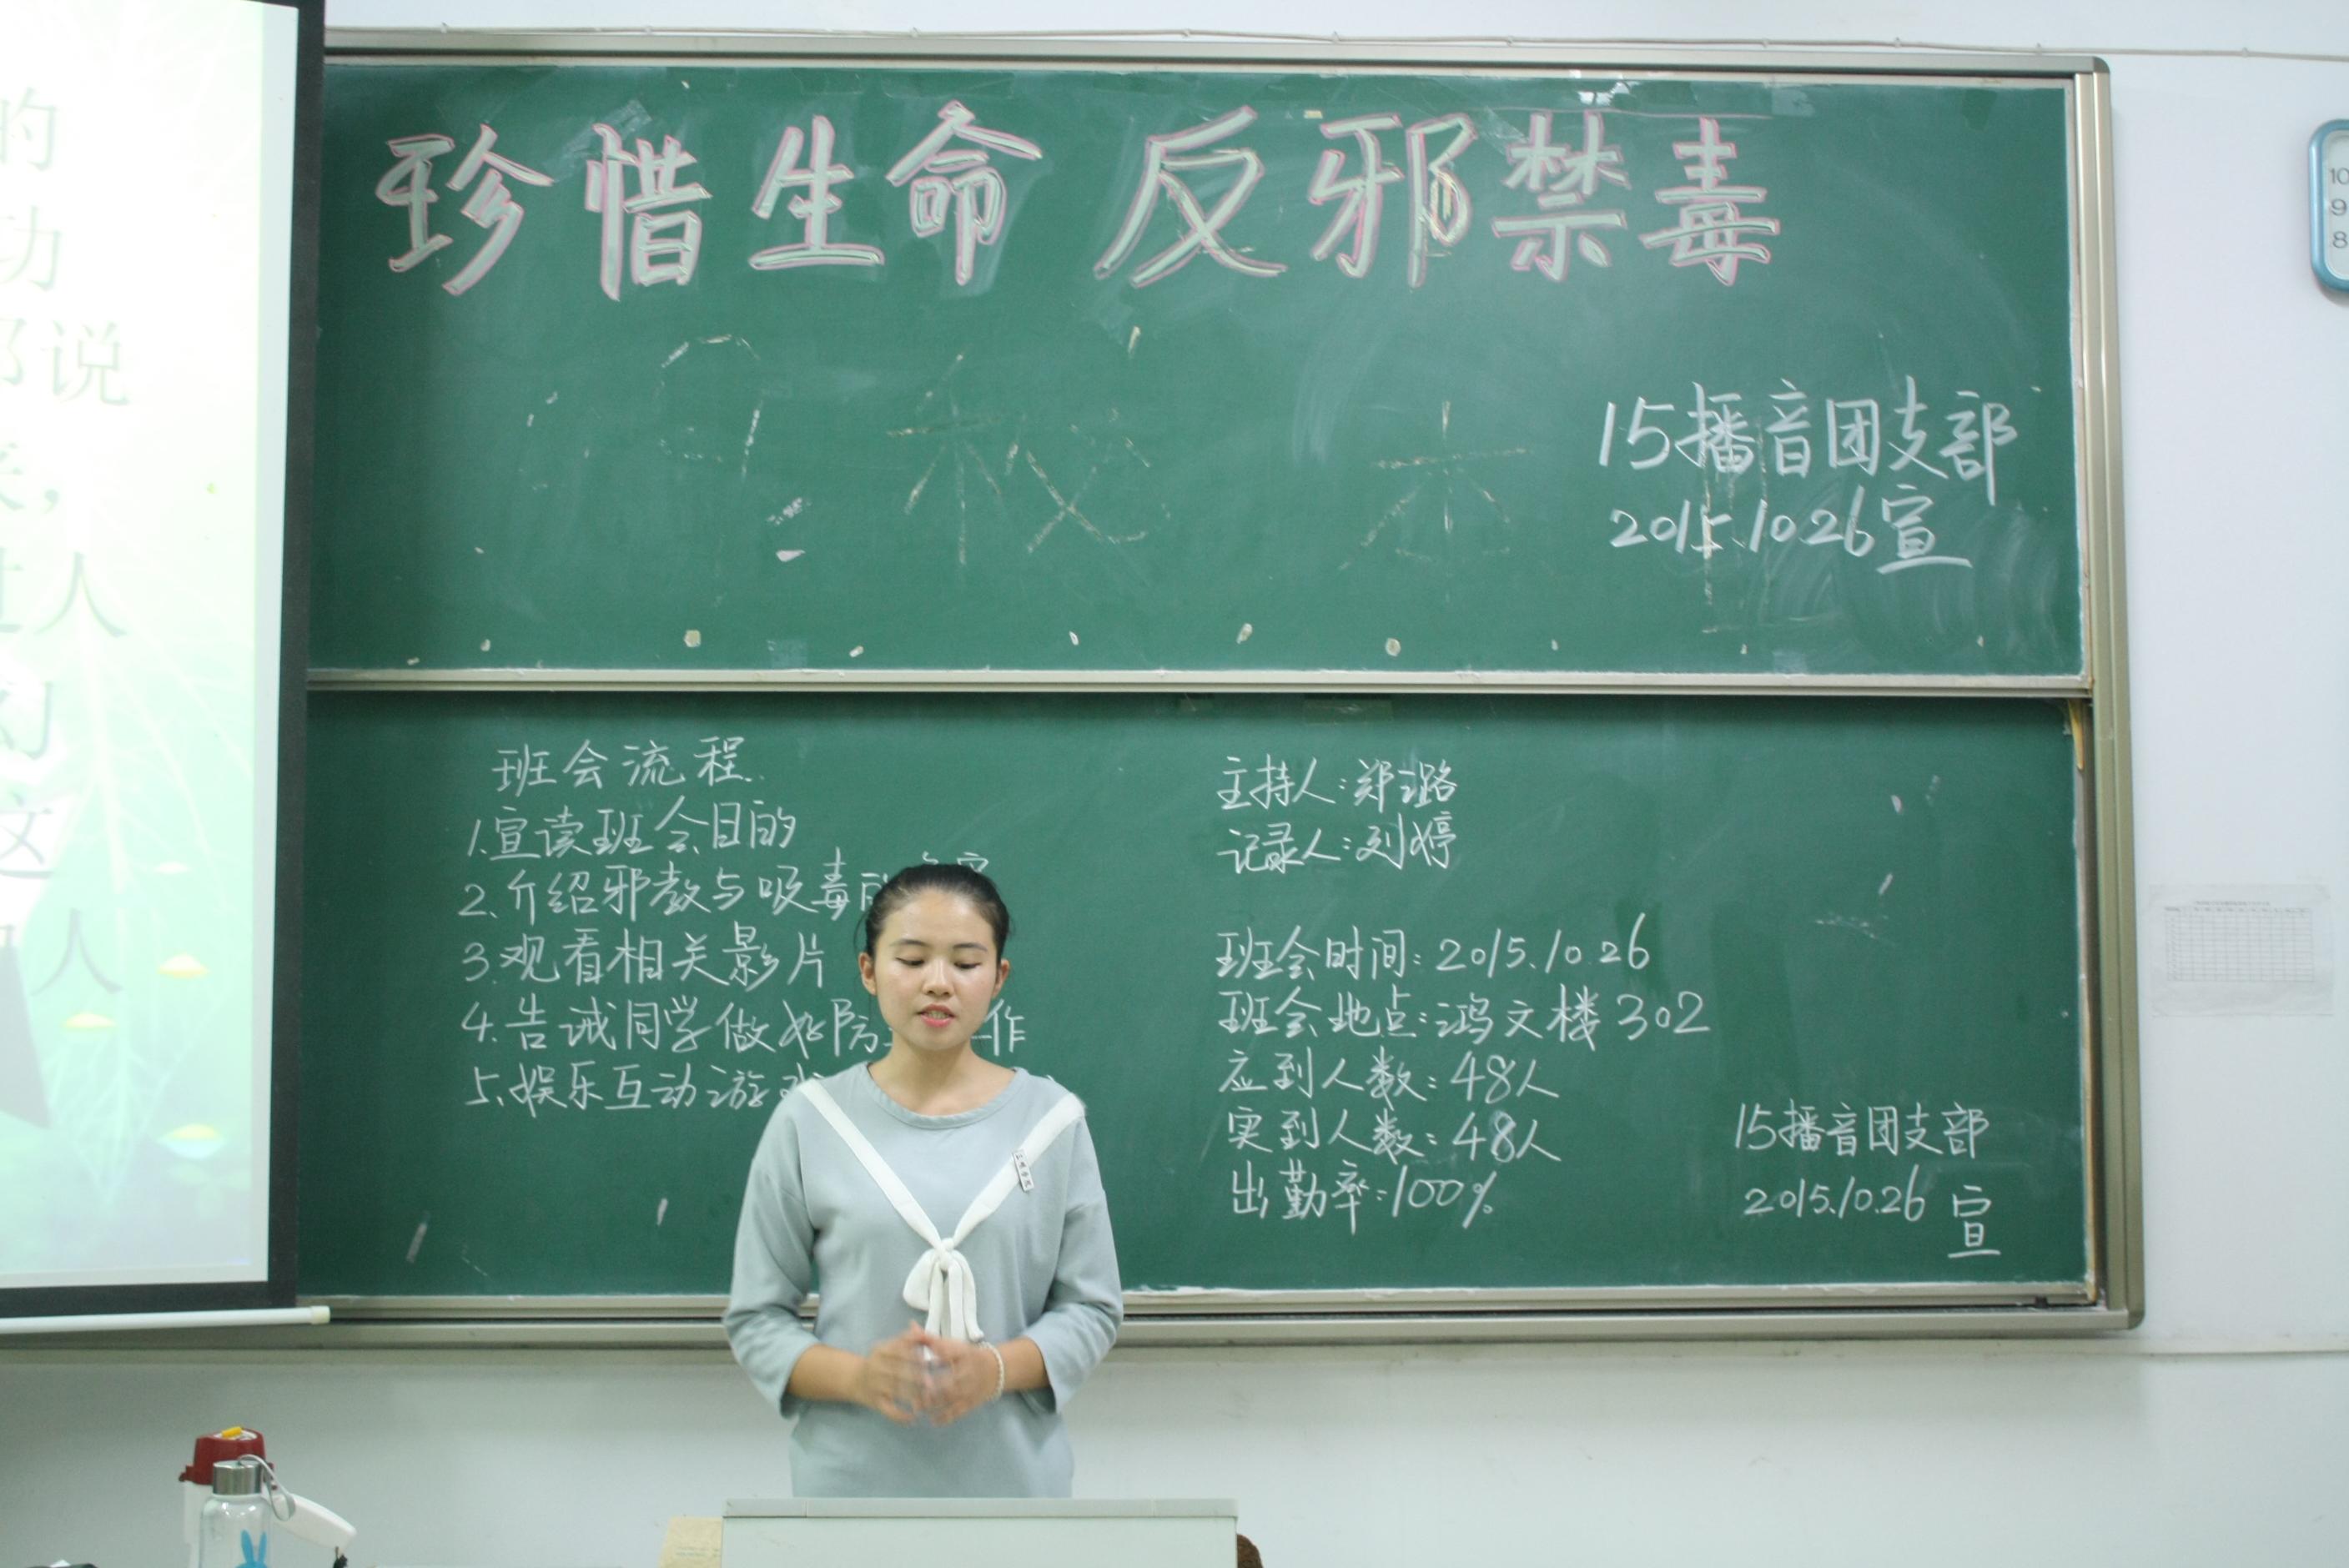 珍惜生命 反邪禁毒
15播音团支部
2015.10.26宣
班会流程
1.宣读班会目的
2.介绍邪教与吸毒的危害
3.观看相关影片
4.告诫同学做好防 作
5.娱乐互动游戏
主持人:郑璐
记录人:刘婷
班会时间:2015.10.26
班会地点:鸿文楼302
应到人数:48人
实到人数:48人
出勤率:100%
15播音团支部
2015.10.26
宣
的
功
说
人
幻
这
人
10
9
8